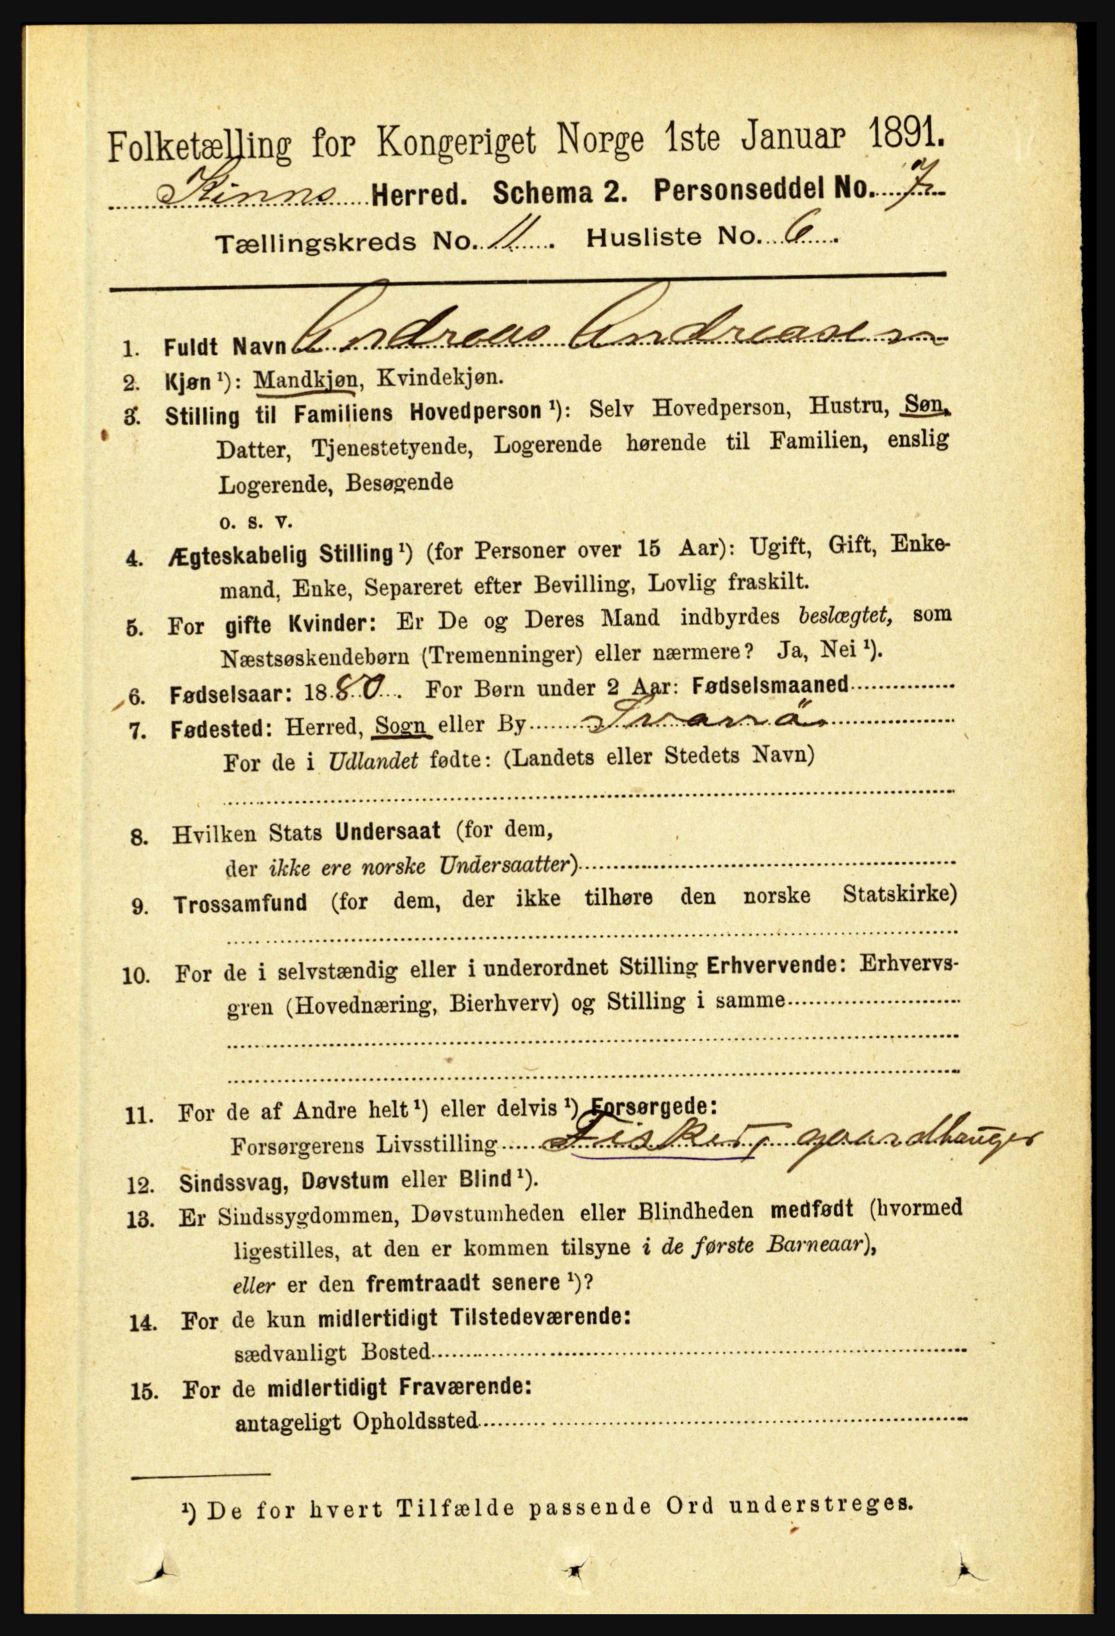 Folketælling for Kongeriget Norge 1ste Januar 1891.
Kinns Herred. Schema 2. Personseddel No. 7
Tællingskreds No. 11. Husliste No. 6.
1. Fuldt Navn Andreas Andreasen
2. Kjøn ¹): Mandkjøn, Kvindekjøn.
3. Stilling til Familiens Hovedperson ¹): Selv Hovedperson, Hustru, Søn,
Datter, Tjenestetyende, Logerende hørende til Familien, enslig
Logerende, Besøgende
o. s. v.
4. Ægteskabelig Stilling ¹) (for Personer over 15 Aar): Ugift, Gift, Enke-
mand, Enke, Separeret efter Bevilling, Lovlig fraskilt.
5. For gifte Kvinder: Er De og Deres Mand indbyrdes beslægtet, som
Næstsøskendebørn (Tremenninger) eller nærmere? Ja, Nei ¹).
6. Fødselsaar: 1880. For Børn under 2 Aar: Fødselsmaaned
7. Fødested: Herred, Sogn eller By Svanö
For de i Udlandet fødte: (Landets eller Stedets Navn)
8. Hvilken Stats Undersaat (for dem,
der ikke ere norske Undersaatter)
9. Trossamfund (for dem, der ikke tilhøre den norske Statskirke)
10. For de i selvstændig eller i underordnet Stilling Erhvervende: Erhvervs-
gren (Hovednæring, Bierhverv) og Stilling i samme
11. For de af Andre helt ¹) eller delvis ¹) Forsørgede:
Forsørgerens Livsstilling Fisker, gaardbruger
12. Sindssvag, Døvstum eller Blind ¹).
13. Er Sindssygdommen, Døvstumheden eller Blindheden medfødt (hvormed
ligestilles, at den er kommen tilsyne i de første Barneaar),
eller er den fremtraadt senere ¹)?
14. For de kun midlertidigt Tilstedeværende:
sædvanligt Bosted
15. For de midlertidigt Fraværende:
antageligt Opholdssted
¹) De for hvert Tilfælde passende Ord understreges.